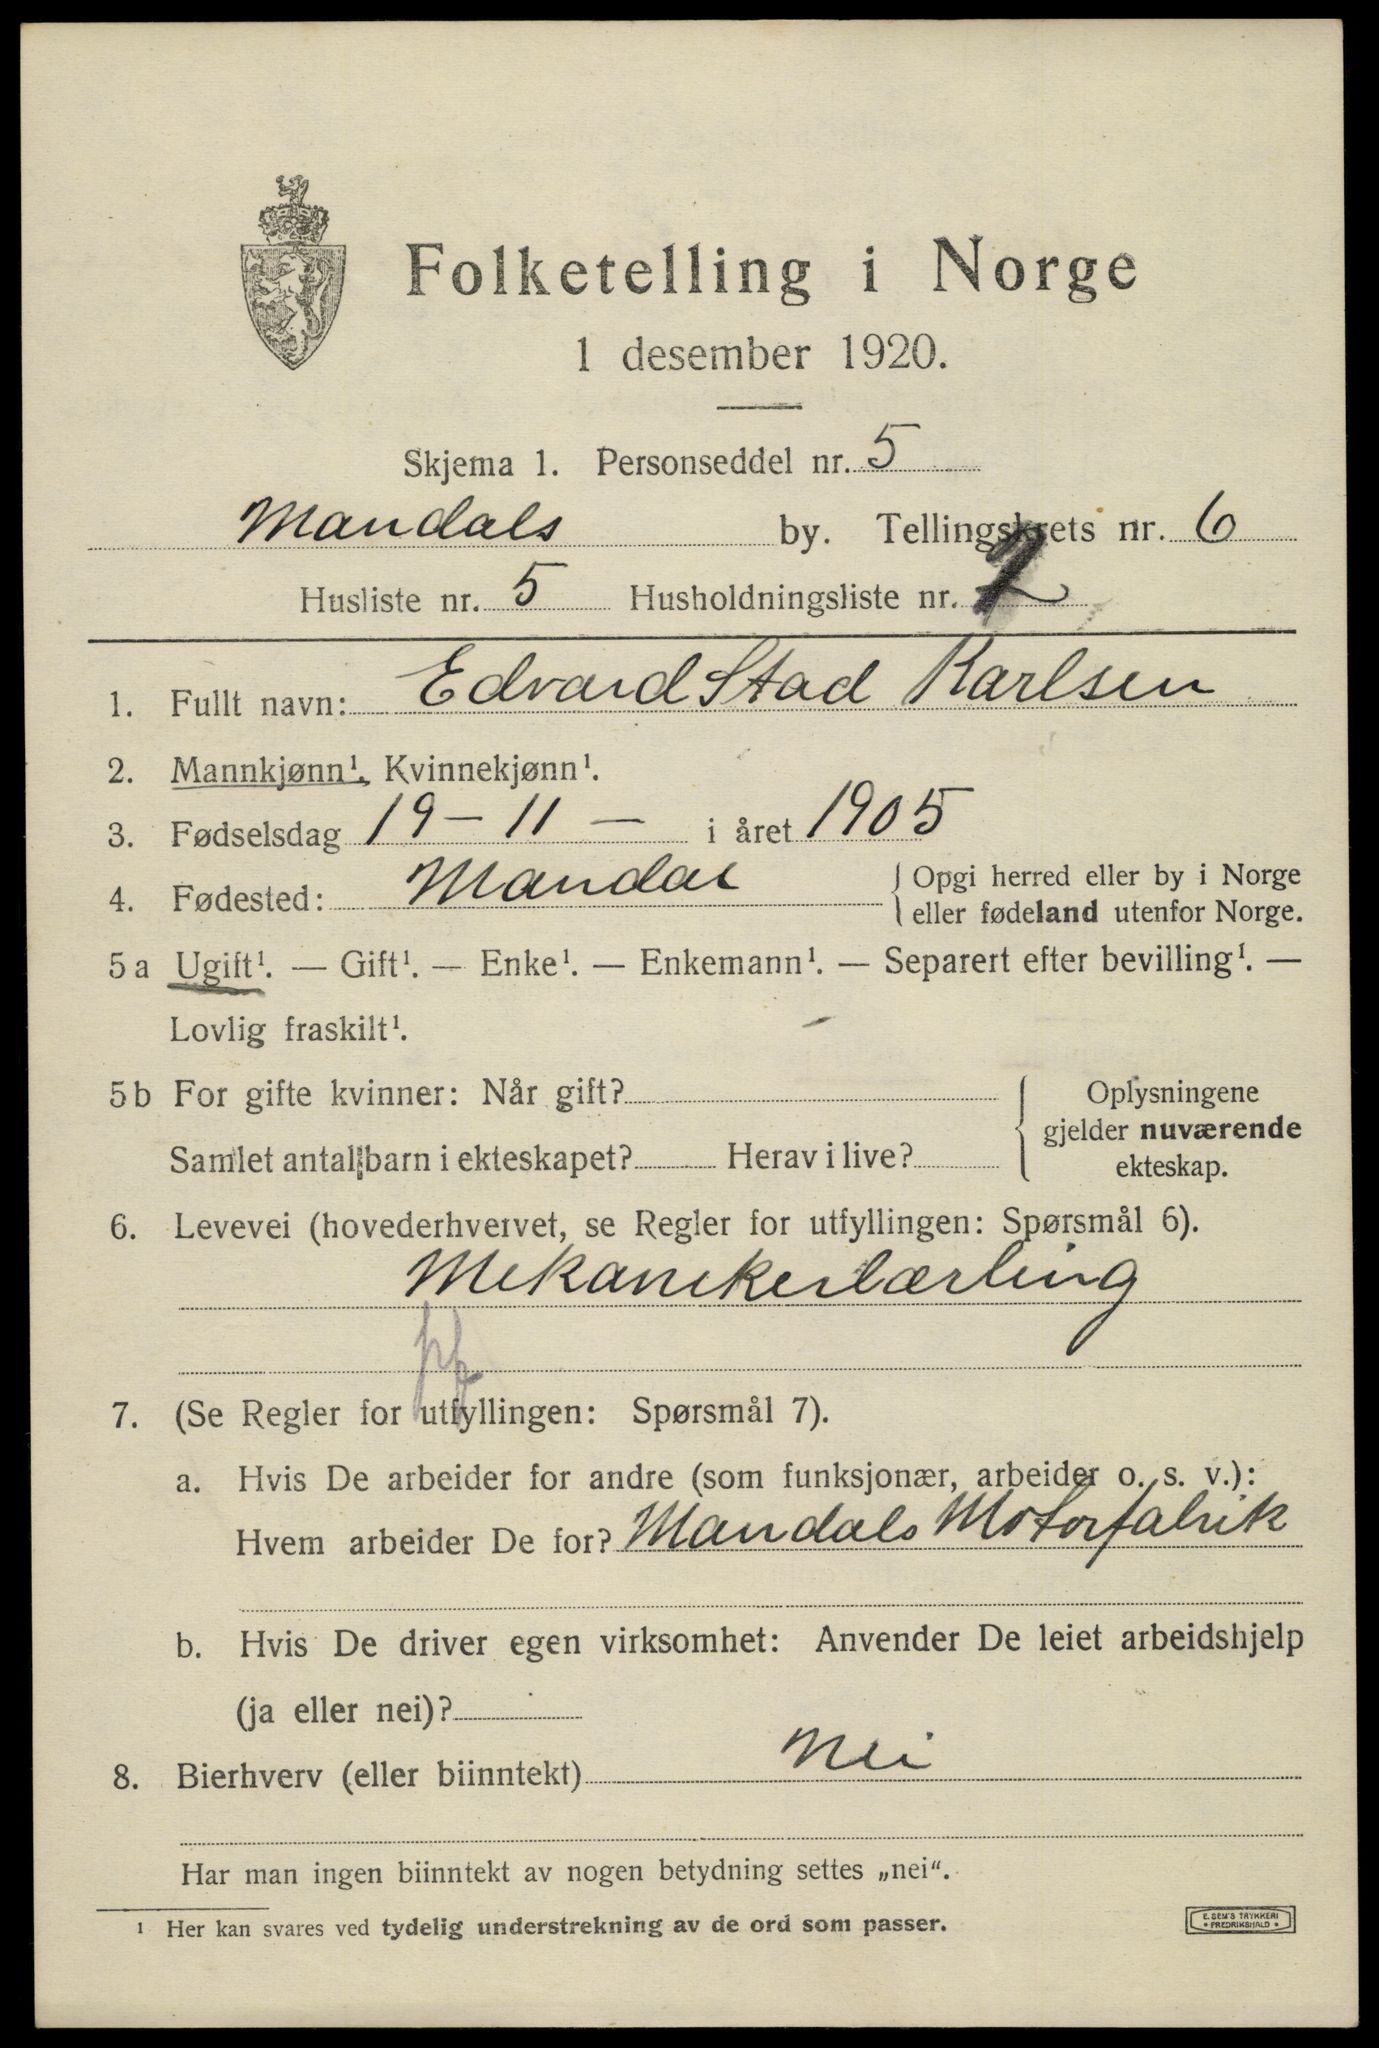 Folketelling i Norge
1 desember 1920.
Skjema 1. Personseddel nr. 5
Mandals by. Tellingskrets nr. 6
Husliste nr. 5 Husholdningsliste nr. 2
1. Fullt navn: Edvard Stad Karlsen
2. Mannkjønn¹. Kvinnekjønn¹.
3. Fødselsdag 19 – 11 – i året 1905
4. Fødested: Mandal { Opgi herred eller by i Norge
eller fødeland utenfor Norge.
5 a Ugift¹. — Gift¹. — Enke¹. — Enkemann¹. — Separert efter bevilling¹. —
Lovlig fraskilt¹.
5 b For gifte kvinner: Når gift? { Oplysningene
gjelder nuværende
Samlet antal barn i ekteskapet? Herav i live? ekteskap.
6. Levevei (hovederhvervet, se Regler for utfyllingen: Spørsmål 6).
Mekanikerlærling
7. (Se Regler for utfyllingen: Spørsmål 7).
a. Hvis De arbeider for andre (som funksjonær, arbeider o. s. v.):
Hvem arbeider De for? Mandals Motorfabrik
b. Hvis De driver egen virksomhet: Anvender De leiet arbeidshjelp
(ja eller nei)?
8. Bierhverv (eller biinntekt) Nei
Har man ingen biinntekt av nogen betydning settes „nei“.
¹ Her kan svares ved tydelig understrekning av de ord som passer.
E. SEM'S TRYKKERI
• FREDRIKSHALD •